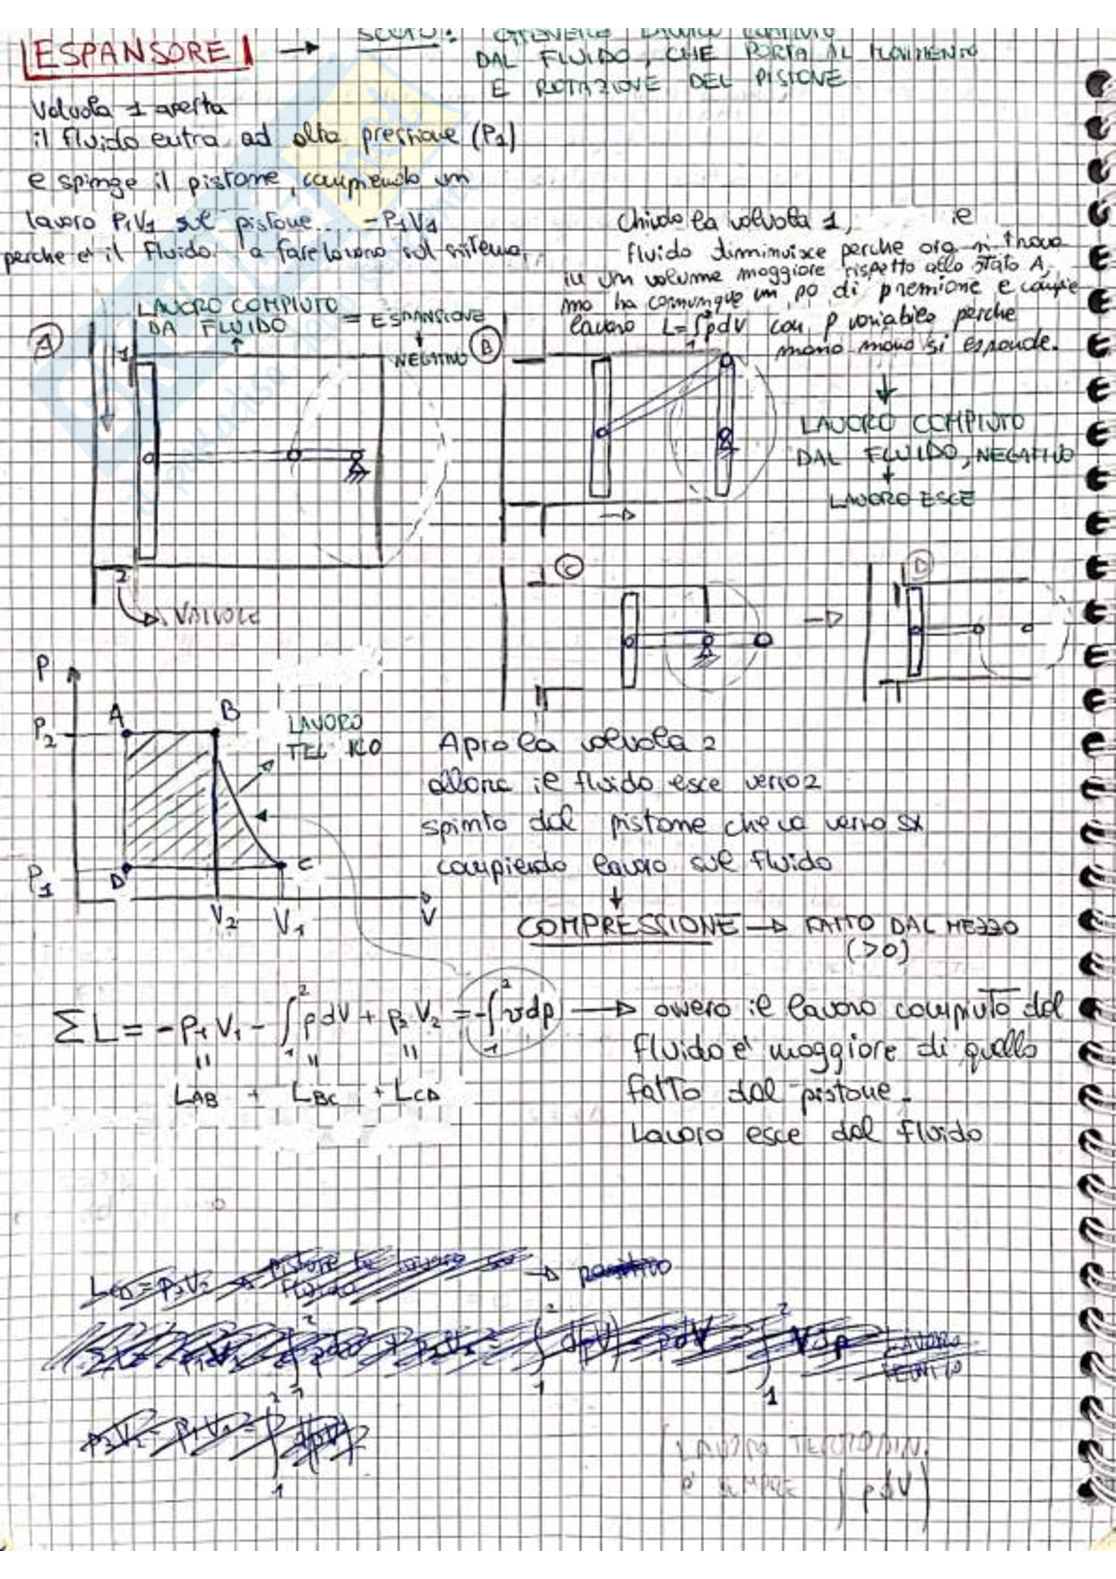 ESPANSORE → SCOPO: OTTENERE LAVORO COMPIUTO
DAL FLUIDO, CHE PORTA AL MOVIMENTO
E ROTAZIONE DEL PISTONE
Valvola 1 aperta
il fluido entra ad alta pressione (P1)
e spinge il pistone, compiendo un
lavoro P1V1 sul pistone... -P1V1
perche è il fluido a fare lavoro sul sistema,
Chiudo la valvola 1, il
fluido diminuisce perche ora si trova
in un volume maggiore rispetto allo stato A,
ma ha comunque un po di pressione e compie
lavoro L=∫pdV con p variabile perche
mano mano si espande.
LAVORO COMPIUTO
DA FLUIDO = ESPANSIONE
NEGATIVO
A
1
B
LAVORO COMPIUTO
DAL FLUIDO, NEGATIVO
LAVORO ESCE
2
VALVOLE
C
D
P
P2
A
B
LAVORO
P1
D
C
V2
V1
V
Apro la valvola 2
allora il fluido esce verso 2
spinto dal pistone che va verso sx
compiendo lavoro sul fluido
COMPRESSIONE → FATTO DAL MEZZO
(>0)
ΣL = -P1V1 - ∫₁² pdV + p2V2 = -∫₁² vdp → ovvero il lavoro compiuto dal
fluido e' maggiore di quello
fatto dal pistone.
Lavoro esce dal fluido
LAB + LBC + LCD
LCD = P2V2 → pistone fa lavoro su fluido → positivo
LAVORO
∫ pdV